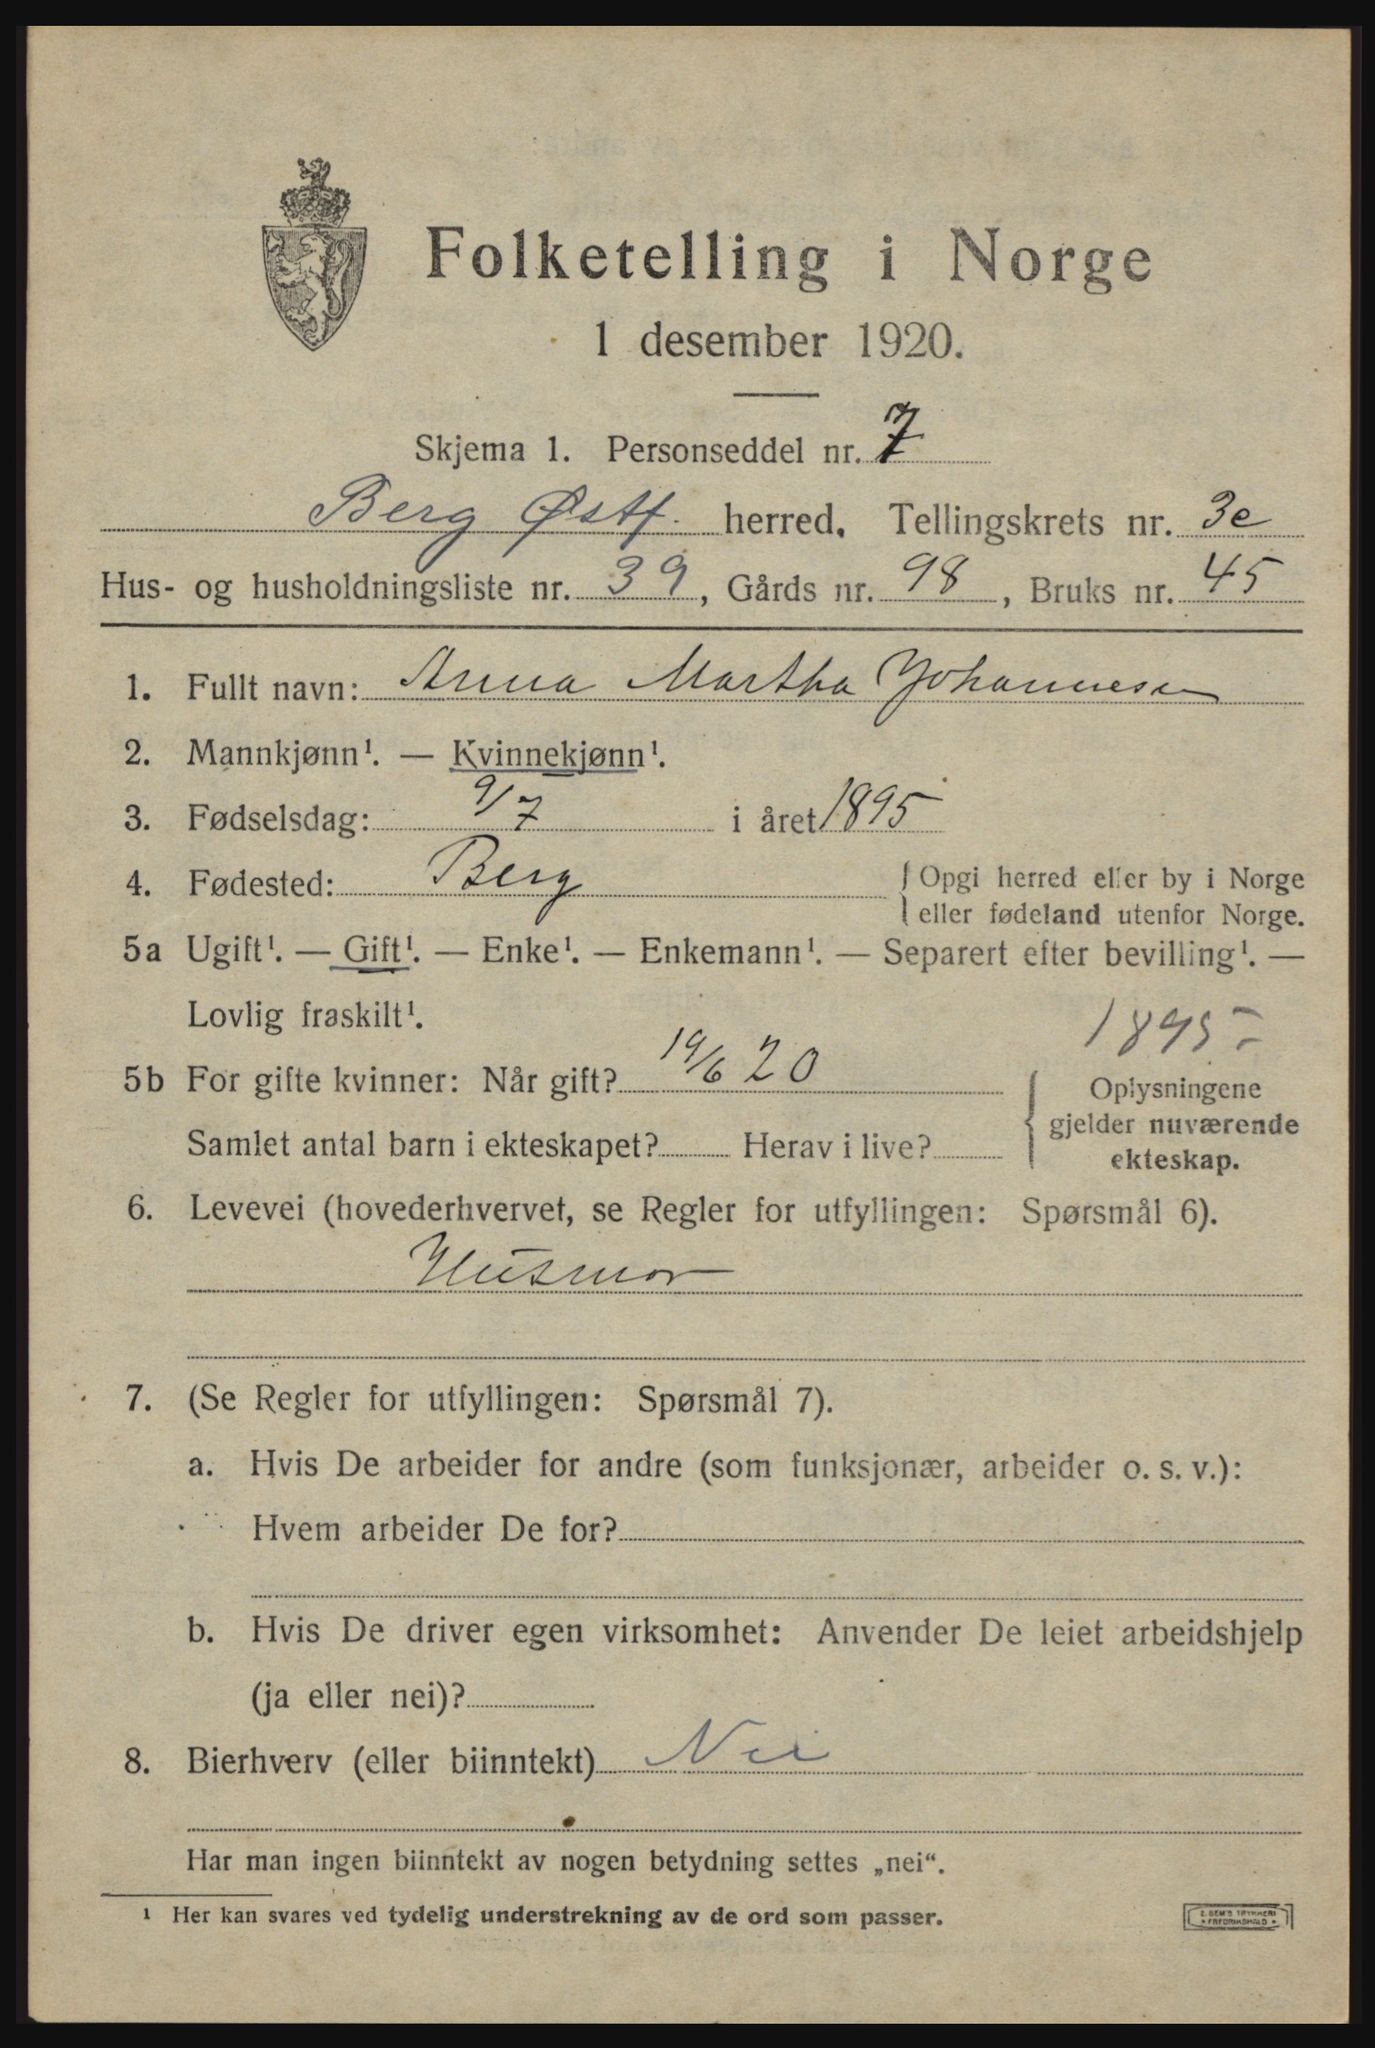 Folketelling i Norge
1 desember 1920.
Skjema 1. Personseddel nr. 7
Berg Østf. herred. Tellingskrets nr. 3e
Hus- og husholdningsliste nr. 39, Gårds nr. 98, Bruks nr. 45
1. Fullt navn: Anna Martha Johannesen
2. Mannkjønn¹. — Kvinnekjønn¹.
3. Fødselsdag: 9/7 i året 1895
4. Fødested: Berg
{ Opgi herred eller by i Norge
eller fødeland utenfor Norge.
5a Ugift¹. — Gift¹. — Enke¹. — Enkemann¹. — Separert efter bevilling¹. —
Lovlig fraskilt¹.
1895
5b For gifte kvinner: Når gift? 19/6 20
Samlet antal barn i ekteskapet? Herav i live?
{ Oplysningene
gjelder nuværende
ekteskap.
6. Levevei (hovederhvervet, se Regler for utfyllingen: Spørsmål 6).
Husmor
7. (Se Regler for utfyllingen: Spørsmål 7).
a. Hvis De arbeider for andre (som funksjonær, arbeider o. s. v.):
Hvem arbeider De for?
b. Hvis De driver egen virksomhet: Anvender De leiet arbeidshjelp
(ja eller nei)?
8. Bierhverv (eller biinntekt) Nei
Har man ingen biinntekt av nogen betydning settes „nei“.
¹ Her kan svares ved tydelig understrekning av de ord som passer.
E. SEM'S TRYKKERI
FREDRIKSHALD